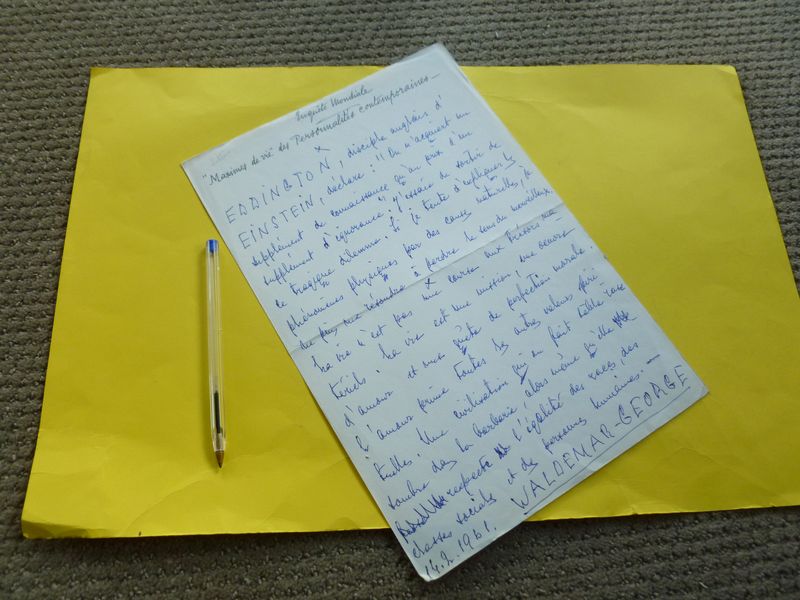 Enquête Mondiale
"Maximes de vie" des Personnalités contemporaines
EDDINGTON, disciple anglais d'
EINSTEIN, déclare: "On n'acquiert un
supplément de connaissance qu'au prix d'un
supplément d'ignorance". J'essaie de sortir de
ce tragique dilemme. Si je tente d'expliquer les
phénomènes physiques par des causes naturelles, je
ne puis me résoudre à perdre le sens du merveilleux.
x
La vie n'est pas une course aux trésors ma-
tériels. La vie est une mission, une oeuvre
d'amour et une quête de perfection morale.
L'amour prime toutes les autres valeurs spiri-
tuelles. Une civilisation qui en fait table rase
sombre dans la barbarie, alors même qu'elle
respecte l'égalité des races, des
classes sociales et des personnes humaines. —
14.2.1961. WALDEMAR-GEORGE